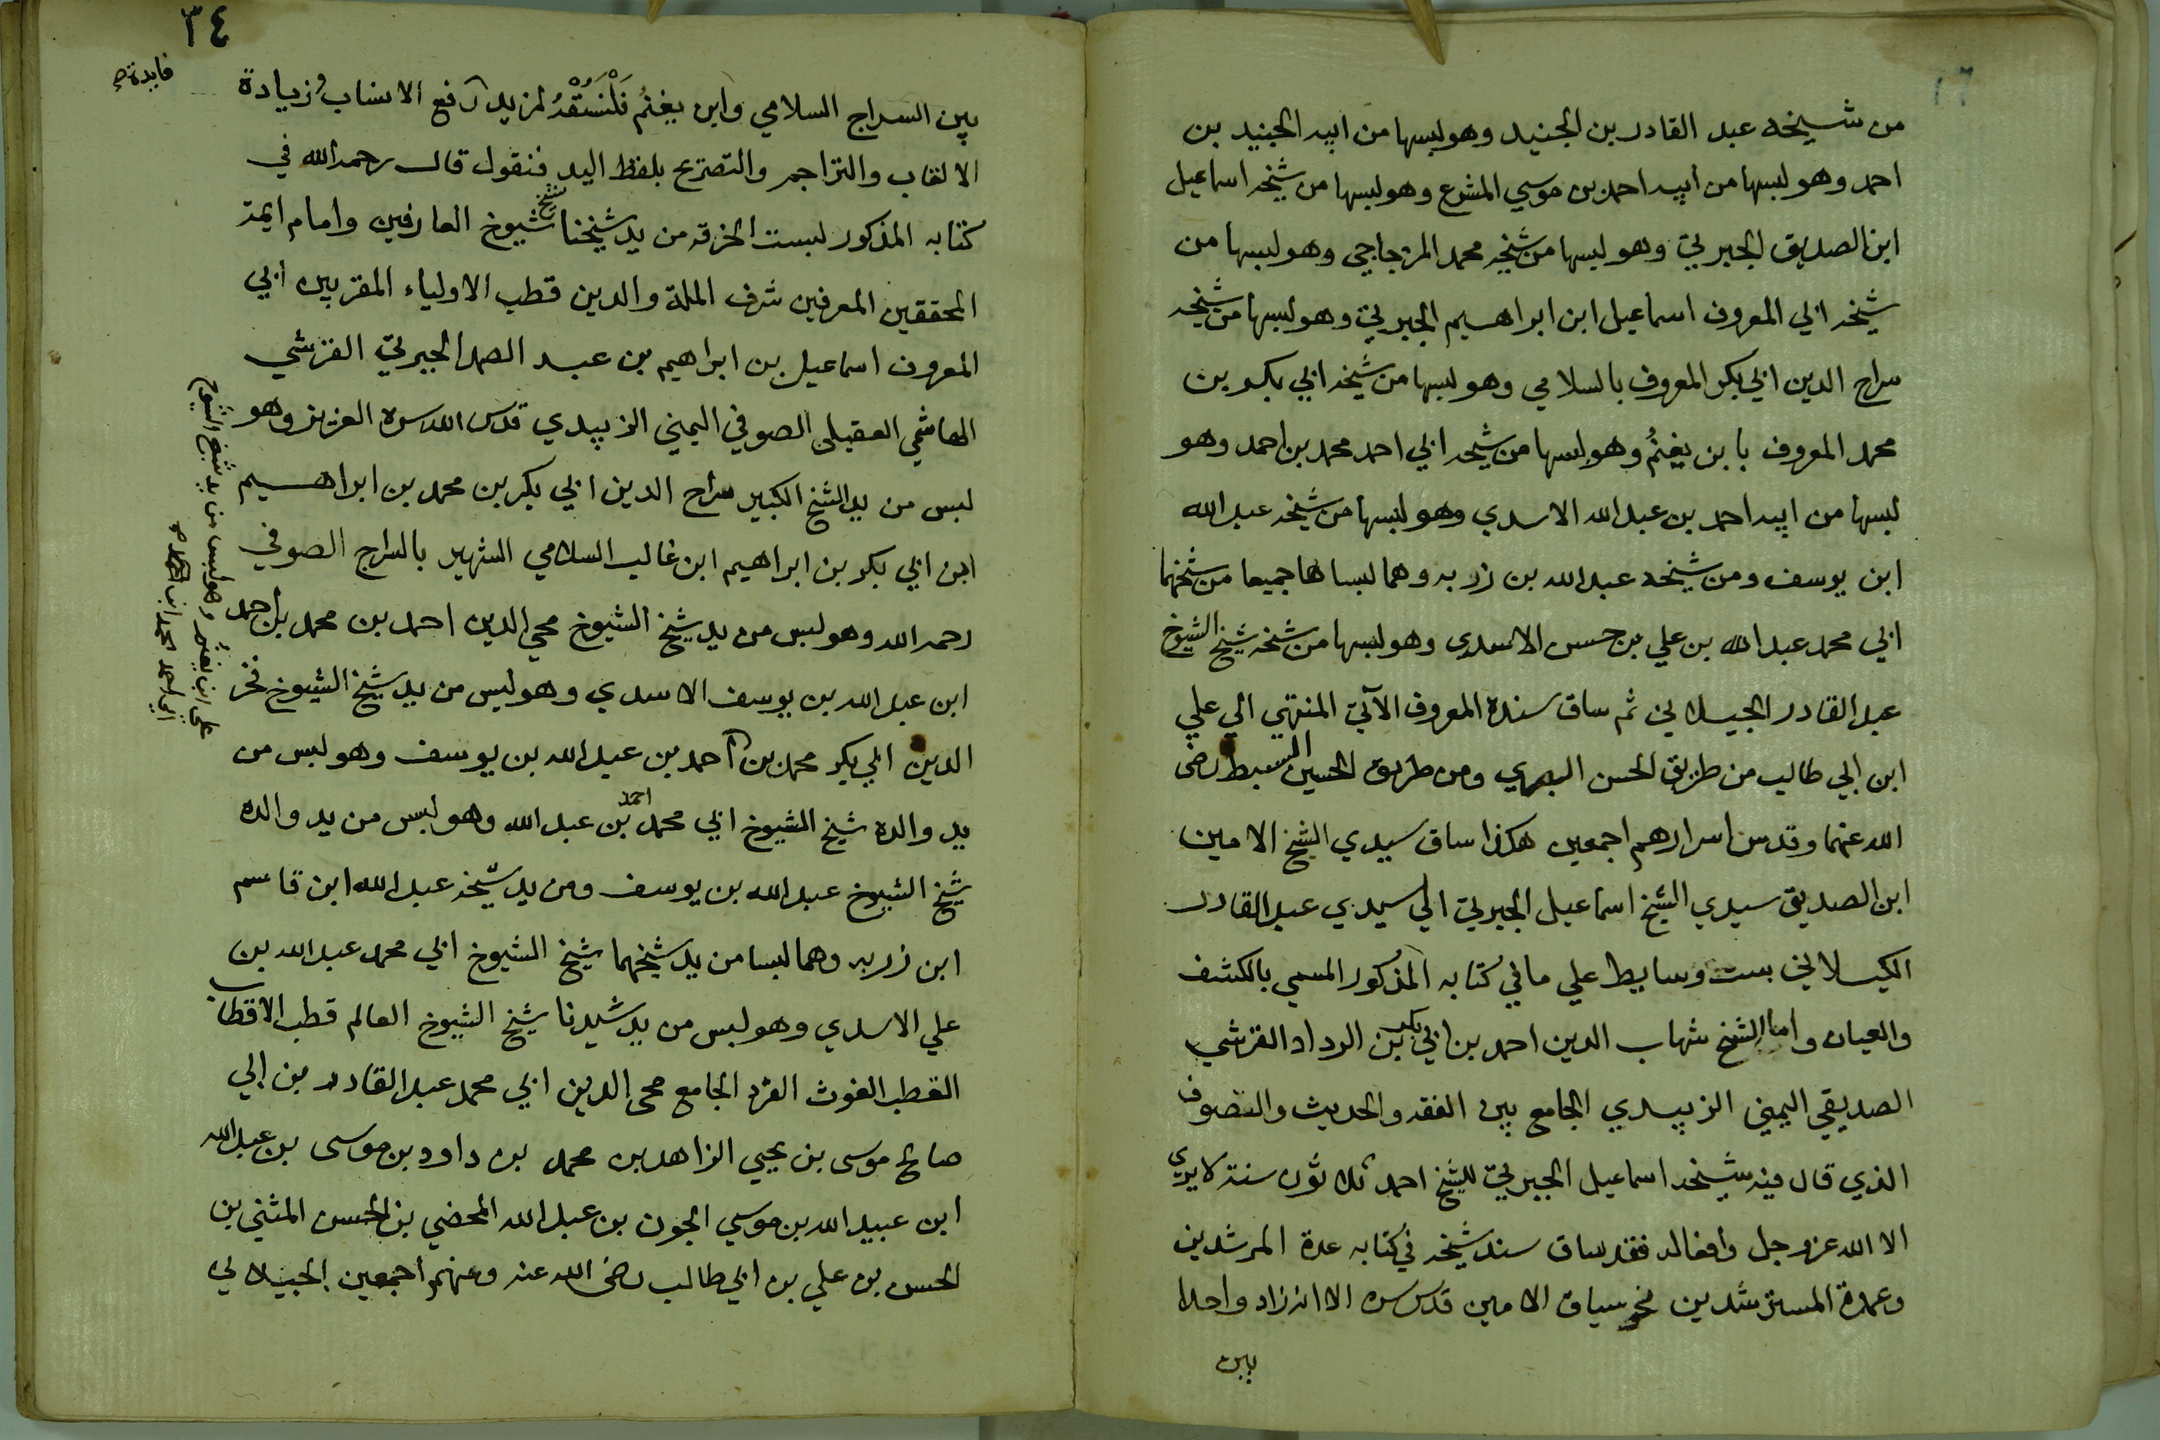 من شيخه عبد القادر بن الجنيد وهو لبسها من ابيه الجنيد بن
احمد وهو لبسها من ابيه احمد بن موسي المشرع وهو لبسها من شيخه اسماعيل
ابن الصديق الجبرتي وهو لبسها من شيخه محمد المزجاجي وهو لبسها من
شيخه ابي المعروف اسماعيل ابن ابراهيم الجبرتي وهو لبسها من شيخه
سراج الدين ابي بكر المعروف بالسلامي وهو لبسها من شيخه ابي بكر بن
محمد المعروف بابن يغنم وهو لبسها من شيخه ابي احمد محمد بن احمد وهو
لبسها من ابيه احمد بن عبد الله الاسدي وهو لبسها من شيخه عبد الله
ابن يوسف ومن شيخه عبد الله بن زربه وهما لبساها جميعا من شيخهما
ابي محمد عبد الله بن علي بن حسن الاسدي وهو لبسها من شيخه شيخ الشيوخ
عبد القادر الجيلاني ثم ساق سنده المعروف الآتي المنتهي الي علي
ابن ابي طالب من طريق الحسن البصري ومن طريق الحسين السبط رضى
الله عنهما وقدس اسرارهم اجمعين هكذا ساق سيدي الشيخ الامين
ابن الصديق سيدي الشيخ اسماعيل الجبرتي الي سيدي عبد القادر
الكيلاني بست وسايط علي ما في كتابه المذكور المسمي بالكشف
والعيان واما الشيخ شهاب الدين احمد بن ابي بكر بن الرداد القرشي
الصديقي اليمني الزبيدي الجامع بين الفقه والحديث والتصوف
الذي قال فيه شيخه اسماعيل الجبرتي للشيخ احمد ثلاثون سنة لا يري
الا الله عزوجل وافعاله فقد ساق سند شيخه في كتابه عدة المرشدين
وعمدة المسترشدين نحو سياق الامين قدس سره الا انه زاد واحدا
بين
٣٤
فايدة
بين السراج السلامي وابن يغنم فَلْنَسُقْهُ لمزيد رفع الانساب وزيادة
الالقاب والتراجم والتصريح بلفظ اليد فنقول قال رحمه الله في
كتابه المذكور لبست الخرقه من يد شيخنا شيخ شيوخ العارفين وامام ايمة
المحققين المعرفين شرف الملة والدين قطب الاولياء المقربين ابي
المعروف اسماعيل بن ابراهيم بن عبد الصمد الجبرتي القرشي
الهاشمي العقيلي الصوفي اليمني الزبيدي قدس الله سره العزيز وهو
لبس من يد الشيخ الكبير سراج الدين ابي بكر بن محمد بن ابراهيم
ابن ابي بكر بن ابراهيم ابن غالب السلامي الشهير بالسراج الصوفي
رحمه الله وهو لبس من يد شيخ الشيوخ محي الدين احمد بن محمد بن احمد
ابن عبد الله بن يوسف الاسدي وهو لبس من يد شيخ الشيوخ فخر
الدين ابي بكر محمد بن احمد بن عبد الله بن يوسف وهو لبس من
يد والده شيخ الشيوخ ابي محمد احمد بن عبد الله وهو لبس من يد والده
شيخ الشيوخ عبد الله بن يوسف ومن يد شيخه عبد الله ابن قاسم
ابن زربه وهما لبسا من يد شيخهما شيخ الشيوخ ابي محمد عبد الله بن
علي الاسدي وهو لبس من يد سيدنا شيخ الشيوخ العالم قطب الاقطاب
القطب الغوث الفرد الجامع محي الدين ابي محمد عبد القادر بن ابي
صالح موسى بن يحيي الزاهد بن محمد بن داود بن موسى بن عبد الله
ابن عبيد الله بن موسي الجون بن عبد الله المحضي بن الحسن المثني بن
الحسن بن علي بن ابي طالب رضى الله عنه وعنهم اجمعين الجيلاني
وهو لبس من يد شيخ الشيوخ
علي ابن يغنم
ابي احمد محمد ابن احمد